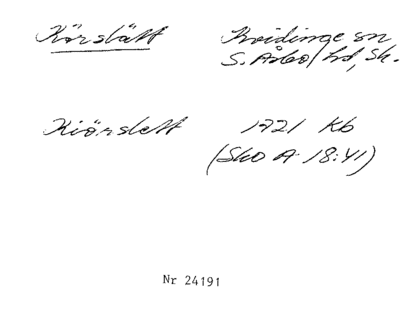 Körslätt Kvidinge sn
S. Åsbo hd, Sk.
Kiörslett 1721 Kb
(SkO A 18:41)
Nr 24191